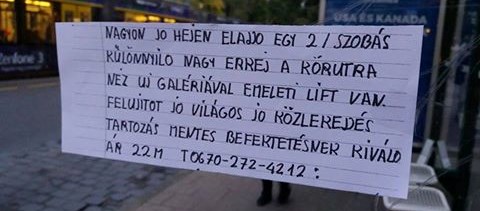 USA ÉS KANADA
Zenfone 3
NAGYON JO HEJEN ELADJO EGY 2/SZOBÁS
KÜLÖNNYILO NAGY ERREJ A KÖRUTRA
NÉZ UJ GALÉRIÁVAL EMELETI LIFT VAN.
FELUJITOT JO VILÁGOS JO KÖZLEREDÉS
TARTOZÁS MENTES BEFERTETÉSNER KIVÁLO
ÁR 22M TO670-272-4212: